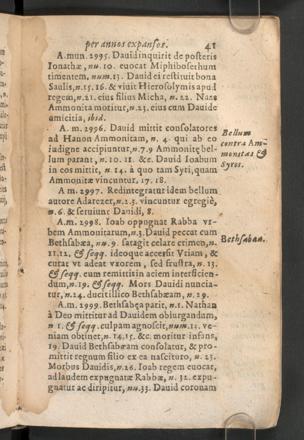 per annos expansos. 41
A.mun. 2995. Dauid inquirit de posteris
Ionathæ, nu.10. euocat Miphibosethum
timentem, num.13. Dauid ei restituit bona
Saulis, n.15.16. & viuit Hierosolymis apud
regem, n.21. eius filius Micha, n. 22. Naas
Ammonita moritur, n.23. eius cum Dauide
amicitia, ibid.
A. m. 2996. Dauid mittit consolatores
ad Hanon Ammonitam, n. 4. qui ab eo
indignè accipiuntur, n.7.9 Ammonitę bel-
lum parant, n. 10. 11. &c. Dauid Ioabum
in eos mittit, n. 14. à quo tam Syri, quam
Ammonitæ vincuntur, 17. 18.
Bellum
contra Am-
monitas &
Syros.
A m. 2997. Redintegratur idem bellum
autore Adarezer, n.2.3. vincuntur egregiè,
n.6. & seruiunt Dauidi, 8.
A.m. 2998. Ioab oppugnat Rabba vr-
bem Ammonitarum, n.3. Dauid peccat cum
Bethsabæa, nu. 9. satagit celare crimen, n.
11.12. & seqq. ideoque accersit Vriam, &
curat vt adeat vxorem, sed frustra, n. 13.
& seqq. eum remittit in aciem interficien-
dum, n.19. & seqq. Mors Dauidi nuncia-
tur, n.24. ducit illico Bethsabæam, n. 29.
Bethsabæa.
A.m. 2999. Bethsabęa parit, n.1. Nathan
à Deo mittitur ad Dauidem obiurgandum,
n 1. & seqq. culpam agnoscit, num.11. ve-
niam obtinet, n.14.15. &c. moritur infans,
19. Dauid Bethsabæam consolatur, & pro-
mittit regnum filio ex ea nascituro, n. 23.
Morbus Dauidis, n.26. Ioab regem euocat,
ad laudem expugnatæ Rabbæ, n. 32. expu-
gnatur ac diripitur, nu.33. Dauid coronam